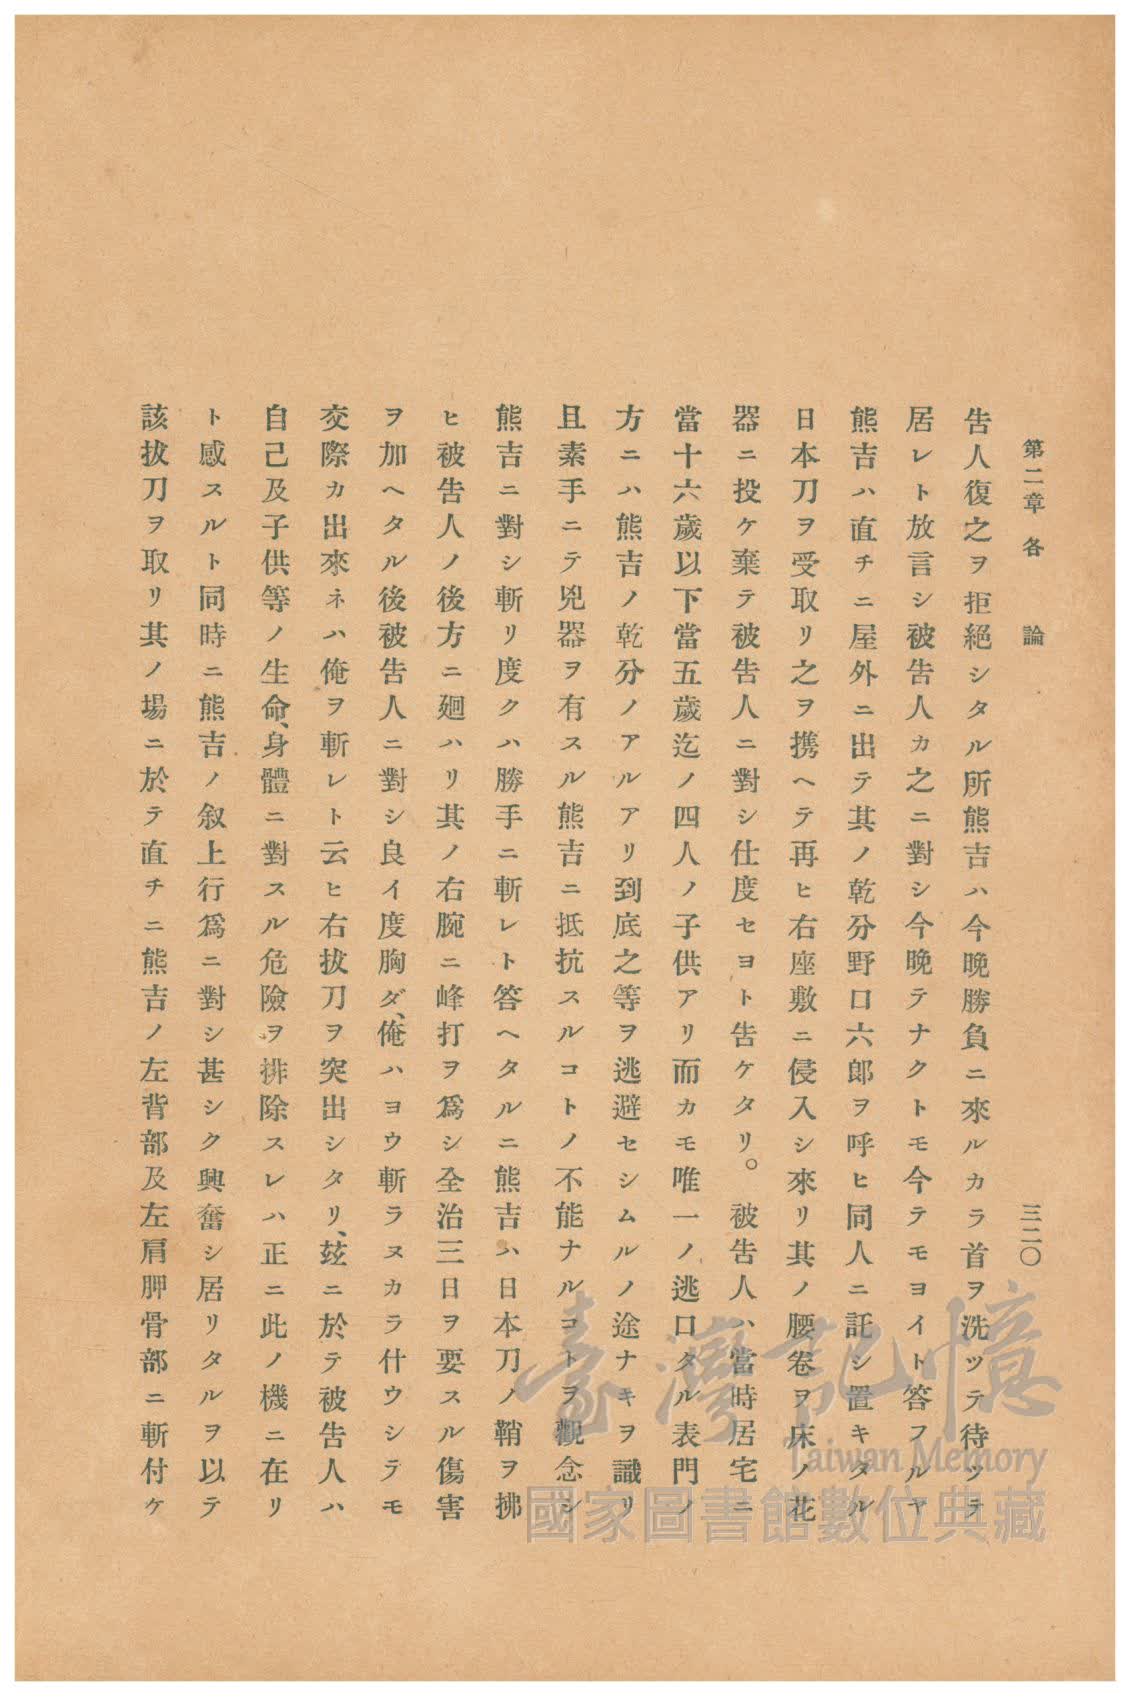 第二章 各論 三二〇
告人復之ヲ拒絕シタル所熊吉ハ今晚勝負ニ來ルカラ首ヲ洗ツテ待ツテ
居レト放言シ被告人カ之ニ對シ今晚テナクトモ今テモヨイト答フルヤ
熊吉ハ直チニ屋外ニ出テ其ノ乾分野口六郞ヲ呼ヒ同人ニ託シ置キタル
日本刀ヲ受取リ之ヲ携ヘテ再ヒ右座敷ニ侵入シ來リ其ノ腰卷ヲ床ノ花
器ニ投ケ棄テ被告人ニ對シ仕度セヨト告ケタリ。被告人ハ當時居宅ニ
當十六歲以下當五歲迄ノ四人ノ子供アリ而カモ唯一ノ逃口タル表門ノ
方ニハ熊吉ノ乾分ノアルアリ到底之等ヲ逃避セシムルノ途ナキヲ識リ
且素手ニテ兇器ヲ有スル熊吉ニ抵抗スルコトノ不能ナルコトヲ觀念シ
熊吉ニ對シ斬リ度クハ勝手ニ斬レト答ヘタルニ熊吉ハ日本刀ノ鞘ヲ拂
ヒ被告人ノ後方ニ廻ハリ其ノ右腕ニ峰打ヲ爲シ全治三日ヲ要スル傷害
ヲ加ヘタル後被告人ニ對シ良イ度胸ダ、俺ハヨウ斬ラヌカラ什ウシテモ
交際カ出來ネハ俺ヲ斬レト云ヒ右拔刀ヲ突出シタリ、玆ニ於テ被告人ハ
自己及子供等ノ生命、身體ニ對スル危險ヲ排除スレハ正ニ此ノ機ニ在リ
ト感スルト同時ニ熊吉ノ叙上行爲ニ對シ甚シク興奮シ居リタルヲ以テ
該拔刀ヲ取リ其ノ場ニ於テ直チニ熊吉ノ左背部及左肩胛骨部ニ斬付ケ
臺灣記憶
Taiwan Memory
國家圖書館數位典藏